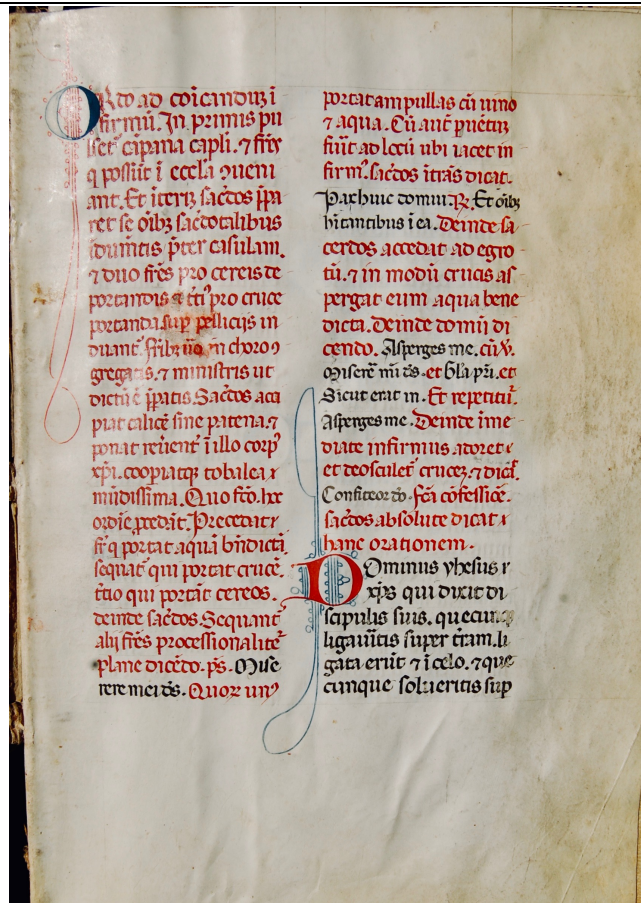 ORdo ad coīcanduʒ ī
firmū. In primis pu
lset᷑ cāpana capli. ⁊ fr̄es
q possūt ī eccl̄a ꝯueni
ant. Et iteruʒ sac̄dos p̄pa
ret se oībʒ sac̄dotalibus
īdumētis pret̄ casulam.
⁊ duo fr̄es pro cereis de
portandis ⁊ t̄tiꝰ pro cruce
portanda sup pelliciis in
duant᷑. fr̄ibʒ ūo in choro ꝯ
gregatis. ⁊ ministris ut
dictū ē p̄patis. Sac̄dos acci
piat calicē sine patena. ⁊
ponat reuēent᷑ ī illo corpꝰ
xp̄i. coopiatqʒ tobalea
mūdissima. Quo fc̄o. hoc
ordīe p̄cedāt. Precedat
fr̄ q portat aquā bn̄dictā.
sequat᷑ qui portat crucē.
t̄tio qui portāt cereos.
deinde sac̄dos. Sequant᷑
alij fr̄es processionalit᷑
plane dicēdo. ps̄. Mise
rere mei dē̄s. Quor unꝰ
portat ampullas cū uino
⁊ aqua. Cū aut̄ ꝑuētuʒ
fūit ad lectū ubi iacet in
firmꝰ. sac̄dos ītrās dicat.
Pax huic domui. ℟. Et oībʒ
hītantibus ī ea. Deinde sa
cerdos accedat ad egro
tū. ⁊ in modū crucis as
pergat eum aqua bene
dicta. Deinde domū di
cendo. Asperges me. cū ℣.
Miserē mī dē̄s. et Gl̄a pr̄i. et
Sicut erat in. Et repetitu᷑.
Asperges me. Deinde īme
diate infirmus adoret
et deosculet᷑ cruceʒ. ⁊ dicat᷑.
Confiteor dō. fc̄a cōfessiōe.
sac̄dos absolute dicat
hanc orationem.
Dominus yhesus
xp̄s qui dixit di
scipulis suis. quecunqʒ
ligauītis super t̄ram. li
gata erūt ⁊ ī celo. ⁊ que
cunque solueritis sup